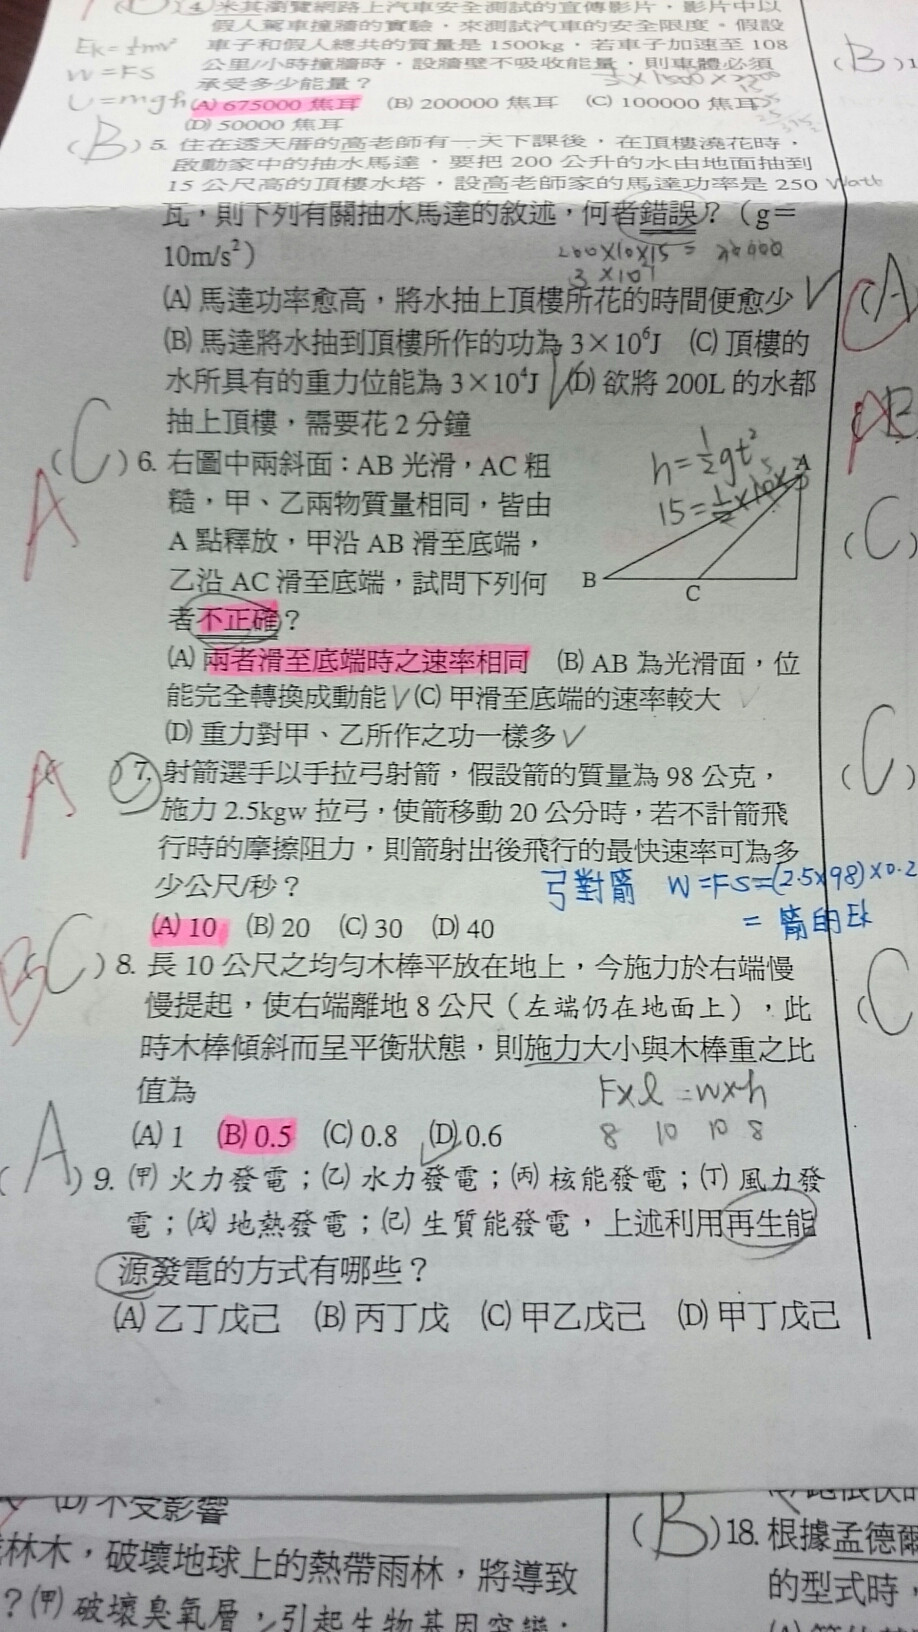 (4)米其瀏覽網路上汽車安全測試的宣傳影片，影片中以
假人駕車撞牆的實驗，來測試汽車的安全限度。假設
Ek=½mv²
車子和假人總共的質量是1500kg，若車子加速至108
W=FS
公里/小時撞牆時，設牆壁不吸收能量，則車體必須
承受多少能量？
U=mgh
(A) 675000 焦耳 (B) 200000 焦耳 (C) 100000 焦耳
(D) 50000 焦耳
(B) 5. 住在透天厝的高老師有一天下課後，在頂樓澆花時，
啟動家中的抽水馬達，要把 200 公升的水由地面抽到
15 公尺高的頂樓水塔，設高老師家的馬達功率是 250 Watt
瓦，則下列有關抽水馬達的敘述，何者錯誤？（g＝
10m/s²）
200×10×15=
3×10⁴
(A) 馬達功率愈高，將水抽上頂樓所花的時間便愈少
(B) 馬達將水抽到頂樓所作的功為 3×10⁶J (C) 頂樓的
水所具有的重力位能為 3×10⁴J (D) 欲將 200L 的水都
抽上頂樓，需要花 2 分鐘
h=½gt²
15=½×10×
(C) 6. 右圖中兩斜面：AB 光滑，AC 粗
A
糙，甲、乙兩物質量相同，皆由
A 點釋放，甲沿 AB 滑至底端，
乙沿 AC 滑至底端，試問下列何
者不正確？
A
B
C
(A) 兩者滑至底端時之速率相同 (B) AB 為光滑面，位
能完全轉換成動能 (C) 甲滑至底端的速率較大
(D) 重力對甲、乙所作之功一樣多
A
( ) 7. 射箭選手以手拉弓射箭，假設箭的質量為 98 公克，
施力 2.5kgw 拉弓，使箭移動 20 公分時，若不計箭飛
行時的摩擦阻力，則箭射出後飛行的最快速率可為多
少公尺/秒？
弓對箭 W=FS=(2.5×98)×0.2
=箭的Ek
(A) 10 (B) 20 (C) 30 (D) 40
B
(C) 8. 長 10 公尺之均勻木棒平放在地上，今施力於右端慢
慢提起，使右端離地 8 公尺（左端仍在地面上），此
時木棒傾斜而呈平衡狀態，則施力大小與木棒重之比
值為
F×l=W×h
8 10 10 8
(A) 1 (B) 0.5 (C) 0.8 (D) 0.6
(A) 9. ㈠甲 火力發電；(乙) 水力發電；(丙) 核能發電；(丁) 風力發
電；(戊) 地熱發電；(己) 生質能發電，上述利用再生能
源發電的方式有哪些？
(A) 乙丁戊己 (B) 丙丁戊 (C) 甲乙戊己 (D) 甲丁戊己
(B)
(A)
(C)
(C)
(C)
(D) 不受影響
林木，破壞地球上的熱帶雨林，將導致
？(甲) 破壞臭氧層，引起生物基因突變；
(B) 18. 根據孟德爾
的型式時，